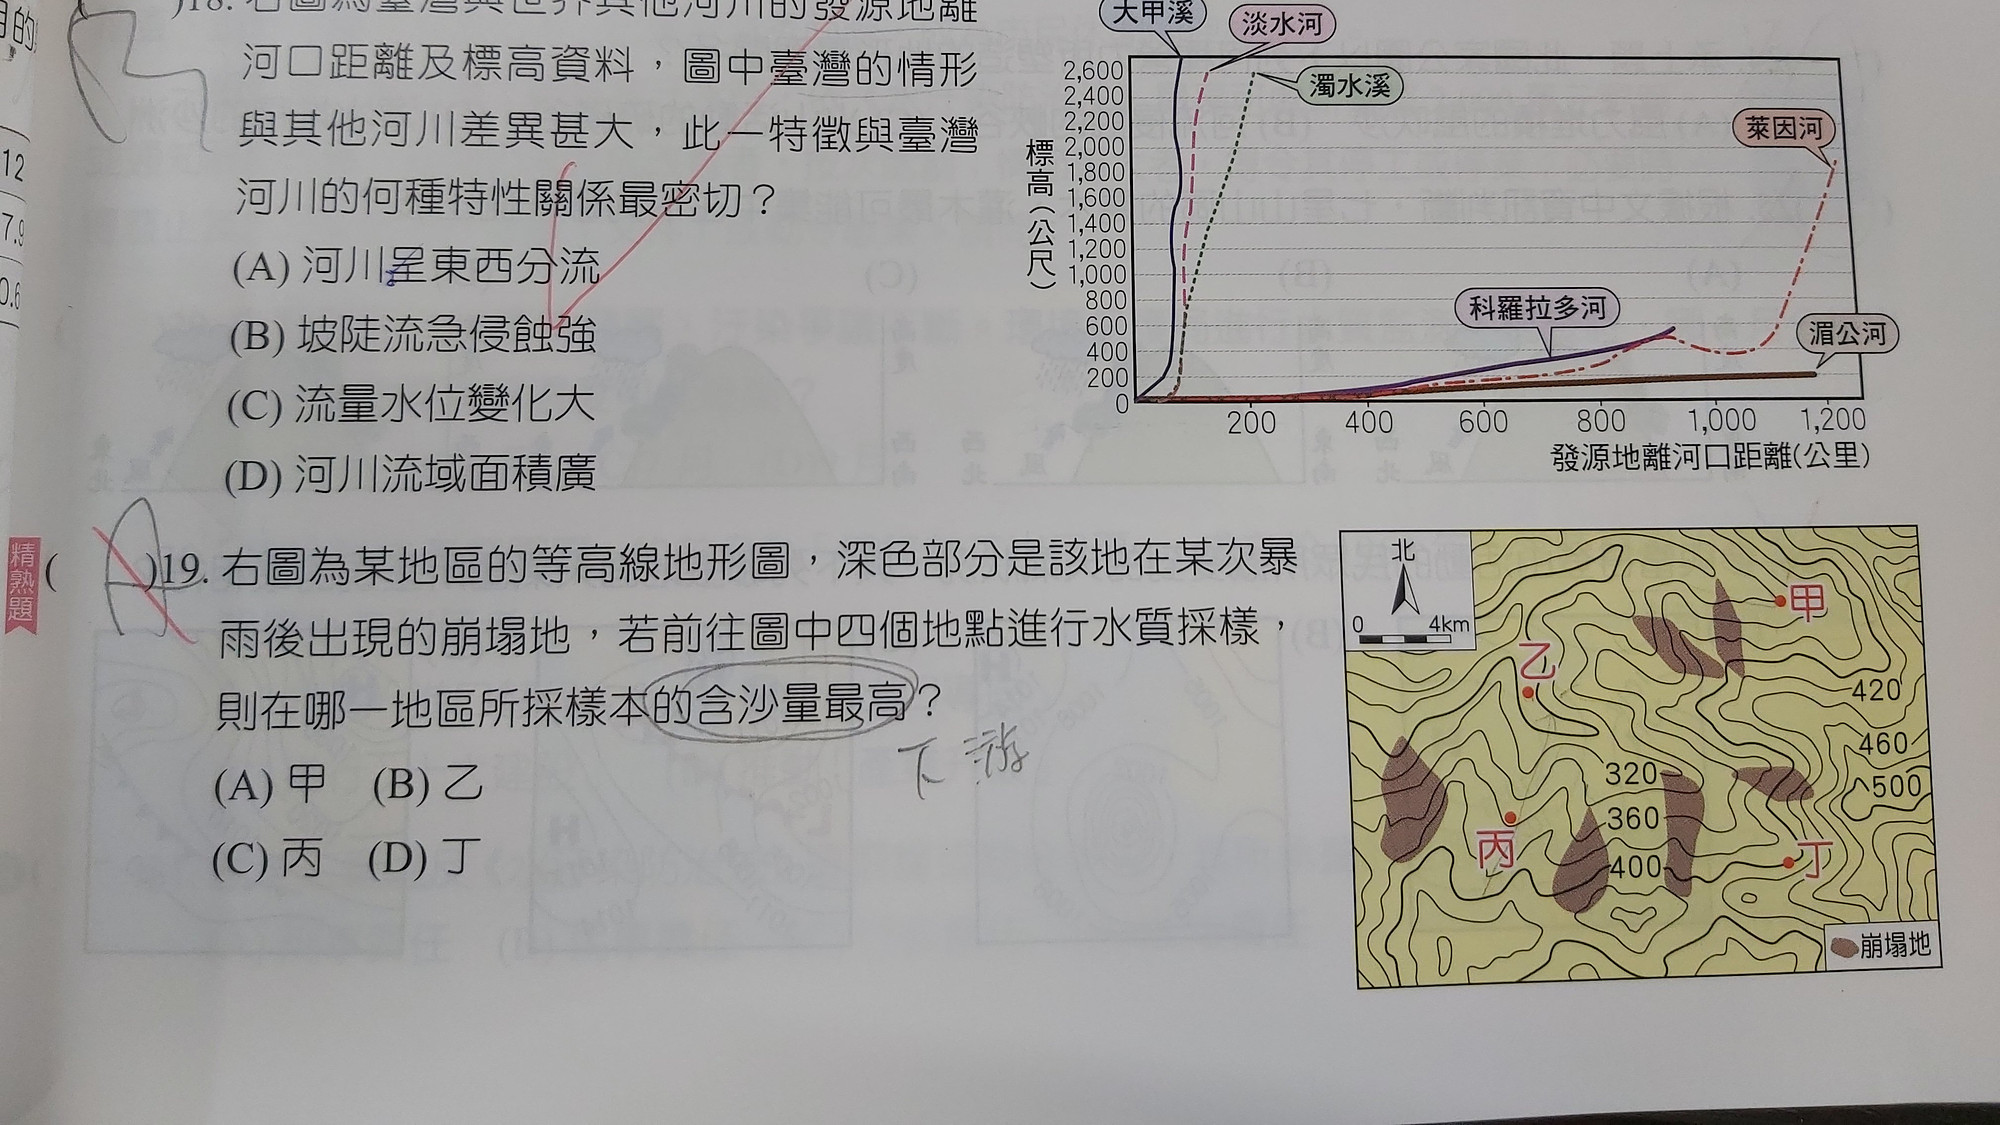 )18. 右圖為臺灣與世界其他河川的發源地離
河口距離及標高資料，圖中臺灣的情形
與其他河川差異甚大，此一特徵與臺灣
河川的何種特性關係最密切？
(A) 河川呈東西分流
(B) 坡陡流急侵蝕強
(C) 流量水位變化大
(D) 河川流域面積廣
大甲溪
淡水河
濁水溪
萊因河
科羅拉多河
湄公河
標高(公尺)
2,600
2,400
2,200
2,000
1,800
1,600
1,400
1,200
1,000
800
600
400
200
0
200 400 600 800 1,000 1,200
發源地離河口距離(公里)
精熟題
( )19. 右圖為某地區的等高線地形圖，深色部分是該地在某次暴
雨後出現的崩塌地，若前往圖中四個地點進行水質採樣，
則在哪一地區所採樣本的含沙量最高？
下游
(A) 甲 (B) 乙
(C) 丙 (D) 丁
北
0 4km
甲
乙
420
460
500
320
360
400
丙
丁
崩塌地
12
7.9
0.6